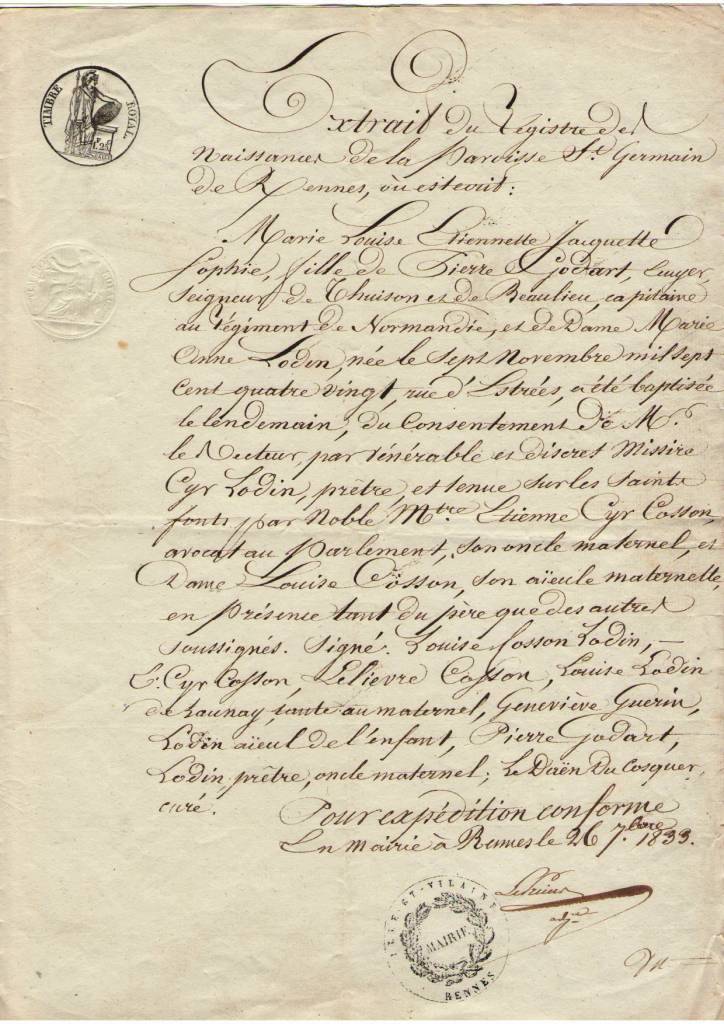 TIMBRE ROYAL
1F.25
Extrait du Registre des
Naissances de la Paroisse St. Germain
de Rennes, où est écrit:
Marie Louise Etiennette Jacquette
Sophie, fille de Pierre Godart, Ecuyer,
Seigneur de Thuison et de Beaulieu, capitaine
au Régiment de Normandie, et de Dame Marie
Anne Lodin, née le sept Novembre mil sept
cent quatre vingt, rue d'Estrées, a été baptisée
le lendemain, du Consentement de Mr.
le Recteur, par vénérable et discret Missire
Cyr Lodin, prêtre, et tenue sur les saints
fonts par Noble Mtre Etienne Cyr Cosson,
avocat au Parlement, son oncle maternel, et
Dame Louise Cosson, son aïeule maternelle,
en présence tant du père que des autres
soussignés. Signé. Louise Cosson Lodin, —
E. Cyr Cosson, Lelievre Cosson, Louise Lodin
de Launay, tante au maternel, Geneviève Guerin,
Lodin aïeul de l'enfant, Pierre Godart,
Lodin, prêtre, oncle maternel; Le Daën Du Cosquer,
curé.
Pour expédition conforme
En mairie à Rennes le 26 7.bre 1833.
adj.
ILLE-ET-VILAINE
MAIRIE
RENNES